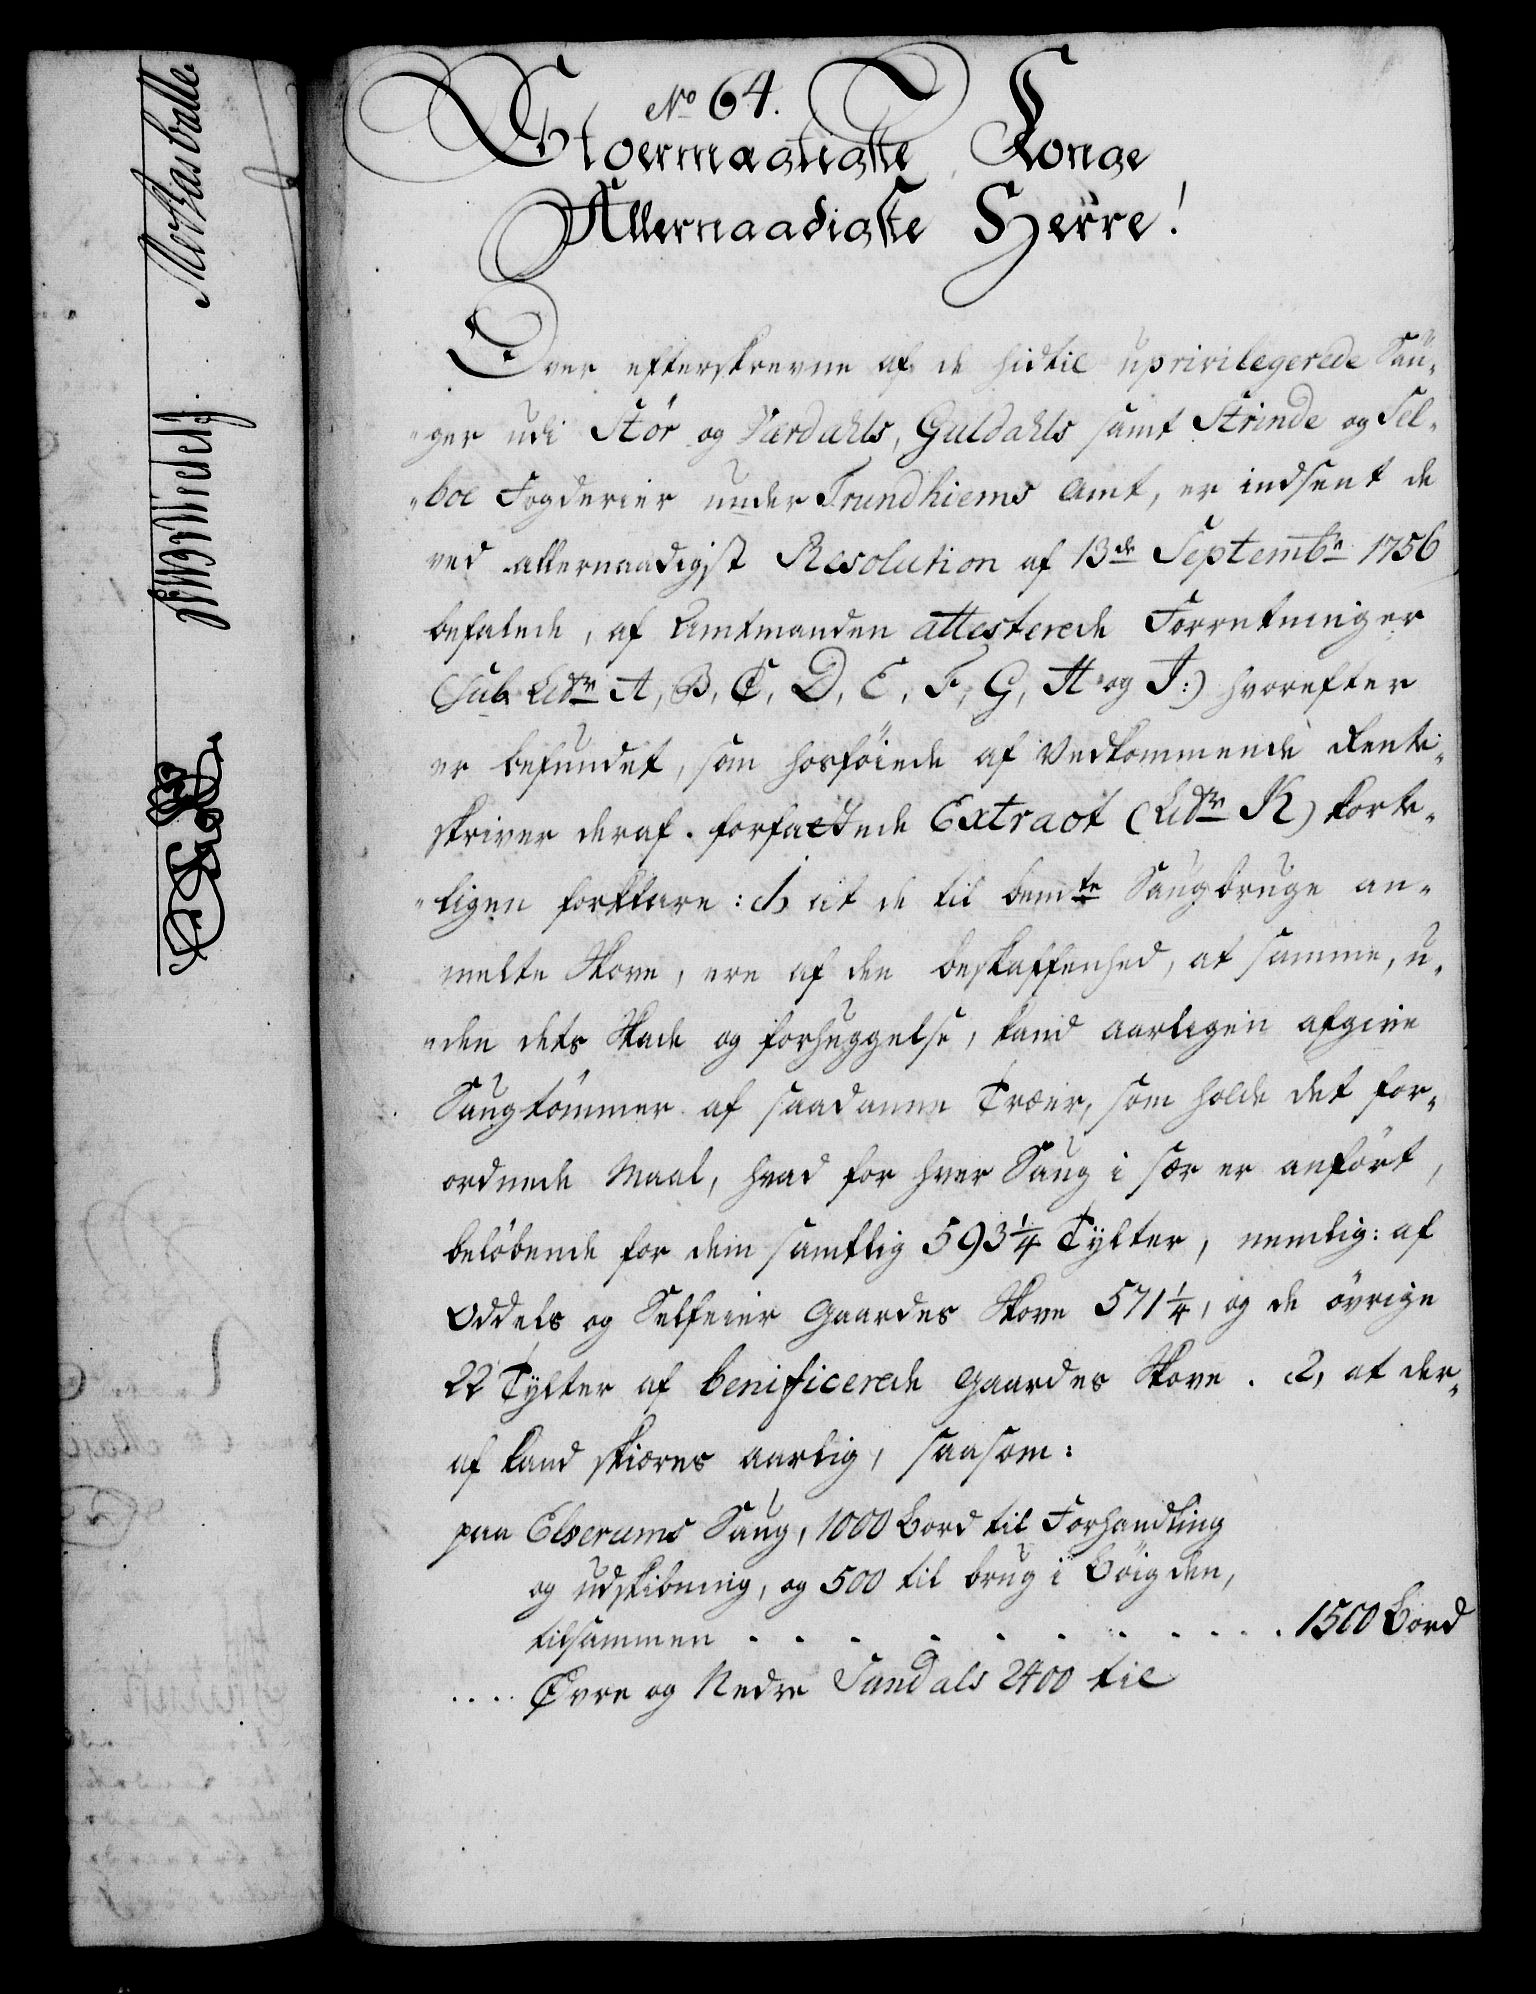 No 64.
Stoermægtigste Konge
Allernaadigste Herre!
Over efterskrevne af de hidtil uprivilegerede Sau-
ger udi Stör og Værdahls, Guldahls samt Strinde og Sel-
boe Fogderier under Trundhiems Amt, er indsent de
ved allernaadigst Resolution af 13de Septembr 1756
befalede, af Amtmanden attesterede Forretninger
(sub Litr A, B, C, D, E, F, G, H og I:) hvorefter
er befundet, som hosföiede af Vedkommende Rente-
skriver deraf forfattede Extract (Litr K) korte-
ligen forklare: 1, at de til bemte Saugbruge an-
melte Skove, ere af den beskaffenhed, at samme, u-
den dets Skade og forhuggelse, kand aarligen afgive
Saugtömmer af saadanne Træer, som holde det for-
ordnede Maal, hvad for hver Saug i sær er anfört,
belöbende for dem samtlig 593 1/4 Tylter, nemlig: af
Oddels og Selfeier Gaardes Skove 571 1/4, og de övrige
22 Tylter af benificerede Gaardes Skove. 2, at der-
af kand skiæres aarlig, saasom:
paa Elverums Saug, 1000 Bord til Forhandling
og udskibning, og 500 til brug i Böigden,
tilsammen . . . . . . . . . . . 1500 Bord
.... Övre og Nedre Sundals 2400 til